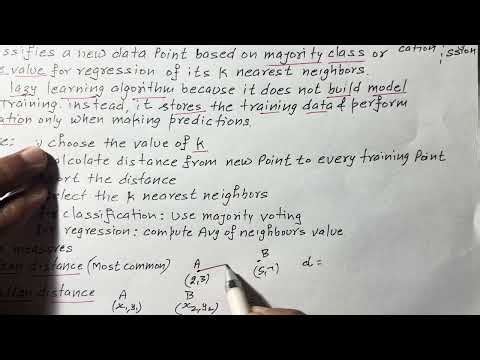 ssifies a new data Point based on majority class or
cation
ssion
e value for regression of its k nearest neighbors.
lazy learning algorithm because it does not build model
training. instead it stores the training data & perform
ation only when making predictions.
choose the value of k
calculate distance from new Point to every training Point
ort the distance
elect the k nearest neighbors
classification: use majority voting
for regression: compute Avg of neighbours value
measures
distance (Most common) A B d =
(2,3) (5,7)
distance A B
(x1,y1) (x2,y2)